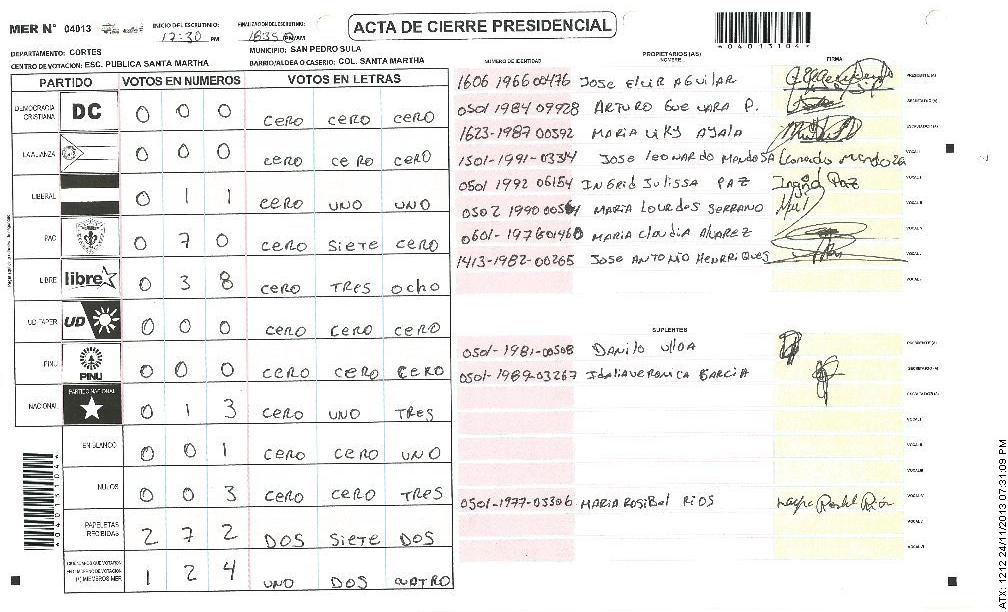 MER N° 04013
INICIO DEL ESCRUTINIO: 17:30 PM
FINALIZACION DEL ESCRUTINIO: PM/AM
ACTA DE CIERRE PRESIDENCIAL
*04013104*
DEPARTAMENTO: CORTES
MUNICIPIO: SAN PEDRO SULA
CENTRO DE VOTACION: ESC. PUBLICA SANTA MARTHA
BARRIO/ALDEA O CASERIO: COL. SANTA MARTHA
PARTIDO VOTOS EN NUMEROS VOTOS EN LETRAS
DEMOCRACIA CRISTIANA DC 0 0 0 CERO CERO CERO
LA ALIANZA 0 0 0 CERO CERO CERO
LIBERAL 0 1 1 CERO UNO UNO
PAC 0 7 0 CERO SIETE CERO
LIBRE libre 0 3 8 CERO TRES OCHO
UD FAPER UD 0 0 0 CERO CERO CERO
PINU PINU 0 0 0 CERO CERO CERO
NACIONAL PARTIDO NACIONAL 0 1 3 CERO UNO TRES
EN BLANCO 0 0 1 CERO CERO UNO
NULOS 0 0 3 CERO CERO TRES
PAPELETAS RECIBIDAS 2 7 2 DOS SIETE DOS
(+) MIEMBROS MER 1 2 4 UNO DOS CUATRO
NUMERO DE IDENTIDAD PROPIETARIOS (AS) FIRMA
1606 1966 00476 JOSE ELIR AGUILAR PRESIDENTE (A)
0501 1984 09928 ARTURO GUEVARA P. SECRETARIO (A)
1623-1987 00592 MARIA AYALA ESCRUTADOR (A)
1501-1991-03314 JOSE LEONARDO MENDOSA Leonardo Mendoza VOCAL I
0501 1992 06154 INGRID JULISSA PAZ Ingrid Paz VOCAL II
0502 1990 MARIA LOURDES SERRANO VOCAL III
0601-1976 MARIA CLAUDIA ALVAREZ VOCAL IV
1413-1982-00265 JOSE ANTONIO HENRRIQUES VOCAL V
SUPLENTES
0501-1981-00508 DANILO ULLOA PRESIDENTE (A)
0501-1989-03267 GARCIA SECRETARIO (A)
ESCRUTADOR (A)
VOCAL I
VOCAL II
VOCAL III
0501-1977-03306 MARIA ROSIBEL RIOS VOCAL IV
VOCAL V
VOCAL VI
*04013104*
ATX: 1212 24/11/2013 07:31:09 PM